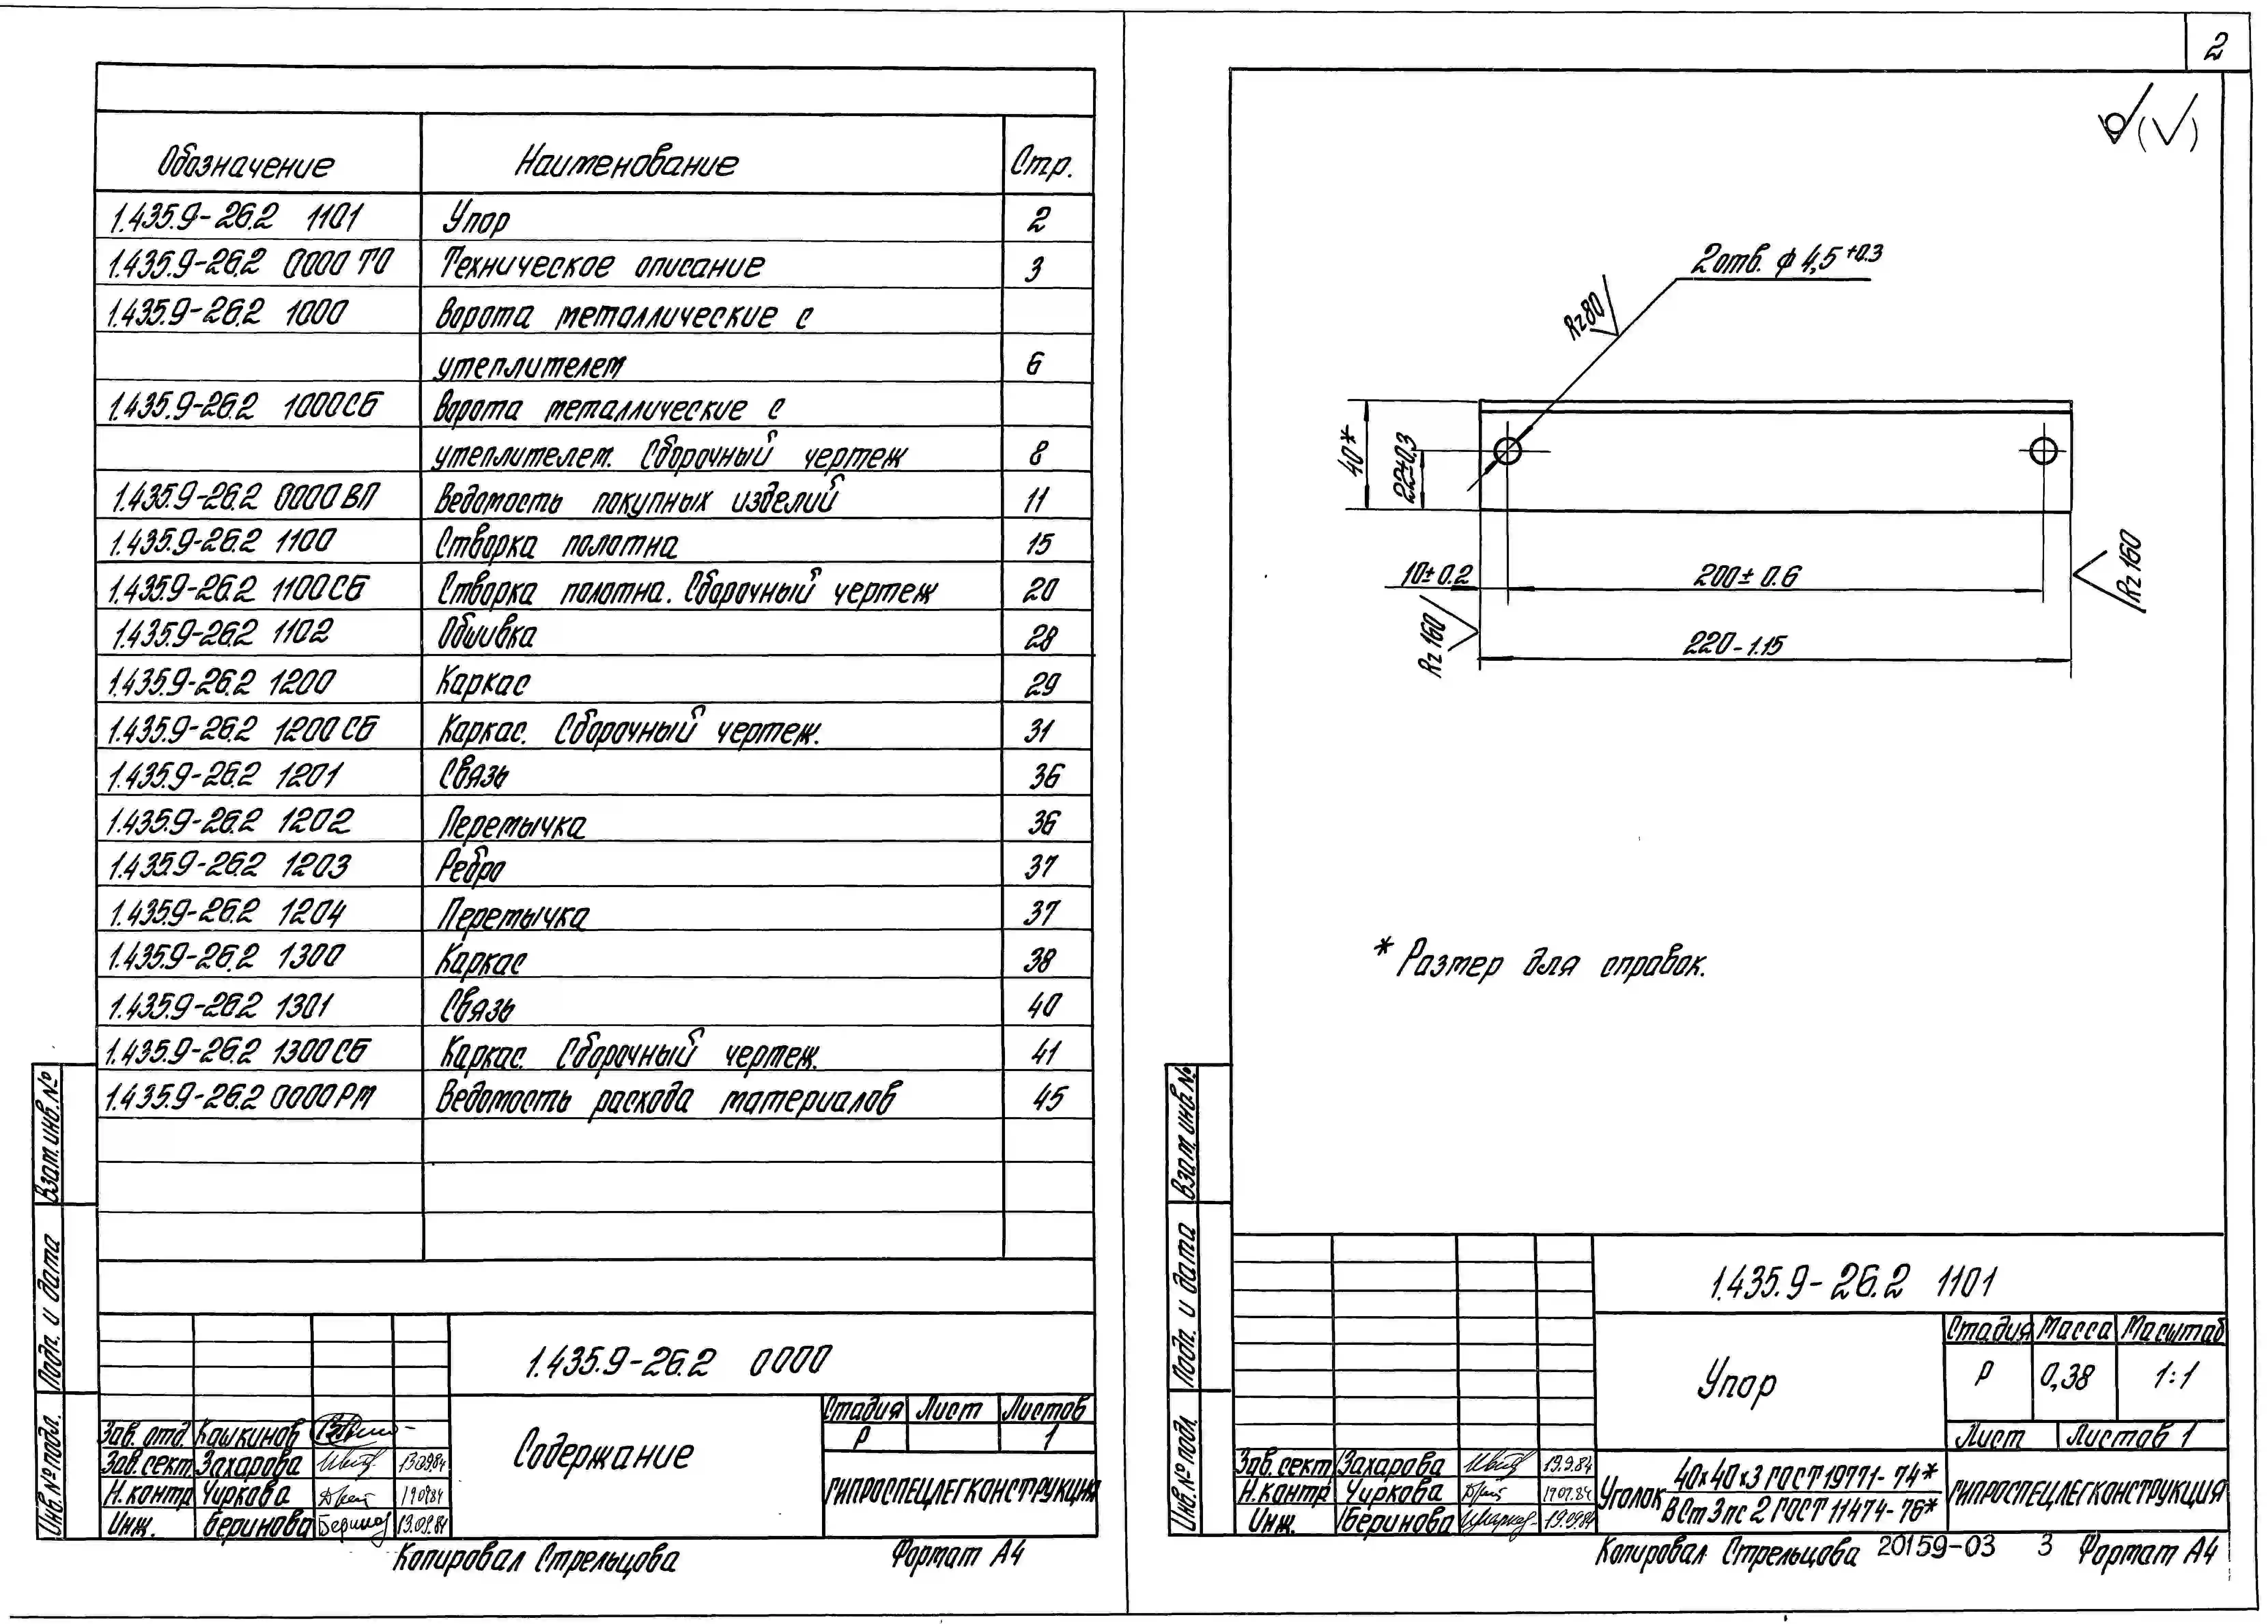 Обозначение Наименование Стр.
1.435.9-26.2 1101 Упор 2
1.435.9-26.2 0000 ТО Техническое описание 3
1.435.9-26.2 1000 Ворота металлические с
утеплителем 6
1.435.9-26.2 1000СБ Ворота металлические с
утеплителем. Сборочный чертеж 8
1.435.9-26.2 0000ВП Ведомость покупных изделий 11
1.435.9-26.2 1100 Створка полотна 15
1.435.9-26.2 1100СБ Створка полотна. Сборочный чертеж 20
1.435.9-26.2 1102 Обшивка 28
1.435.9-26.2 1200 Каркас 29
1.435.9-26.2 1200СБ Каркас. Сборочный чертеж. 31
1.435.9-26.2 1201 Связь 36
1.435.9-26.2 1202 Перемычка 36
1.435.9-26.2 1203 Ребро 37
1.435.9-26.2 1204 Перемычка 37
1.435.9-26.2 1300 Каркас 38
1.435.9-26.2 1301 Связь 40
1.435.9-26.2 1300СБ Каркас. Сборочный чертеж. 41
1.435.9-26.2 0000РМ Ведомость расхода материалов 45
Взам. инв. №
Подп. и дата
Инв. № подл.
1.435.9-26.2 0000
Содержание
Стадия Лист Листов
Р 1
ГИПРОСПЕЦЛЕГКОНСТРУКЦИЯ
Зав. отд. Кашкинов
Зав. сект. Захарова 13.09.84
Н. контр Чиркова 19.09.84
Инж. Беринова 13.09.84
Копировал Стрельцова Формат А4
2
2 отв. ϕ 4,5 +0.3
Rz 80
40*
22±0,3
10±0.2
200± 0.6
220-1.15
Rz 160
Rz 160
* Размер для справок.
Взам. инв. №
Подп. и дата
Инв. № подл.
1.435.9-26.2 1101
Упор
Стадия Масса Масштаб
Р 0,38 1:1
Лист Листов 1
Зав. сект. Захарова 13.9.84
Н. контр Чиркова 19.09.84
Инж. Беринова 19.09.84
Уголок 40х40х3 ГОСТ 19771-74*
ВСт3пс2 ГОСТ 11474-76*
ГИПРОСПЕЦЛЕГКОНСТРУКЦИЯ
Копировал Стрельцова 20159-03 3 Формат А4